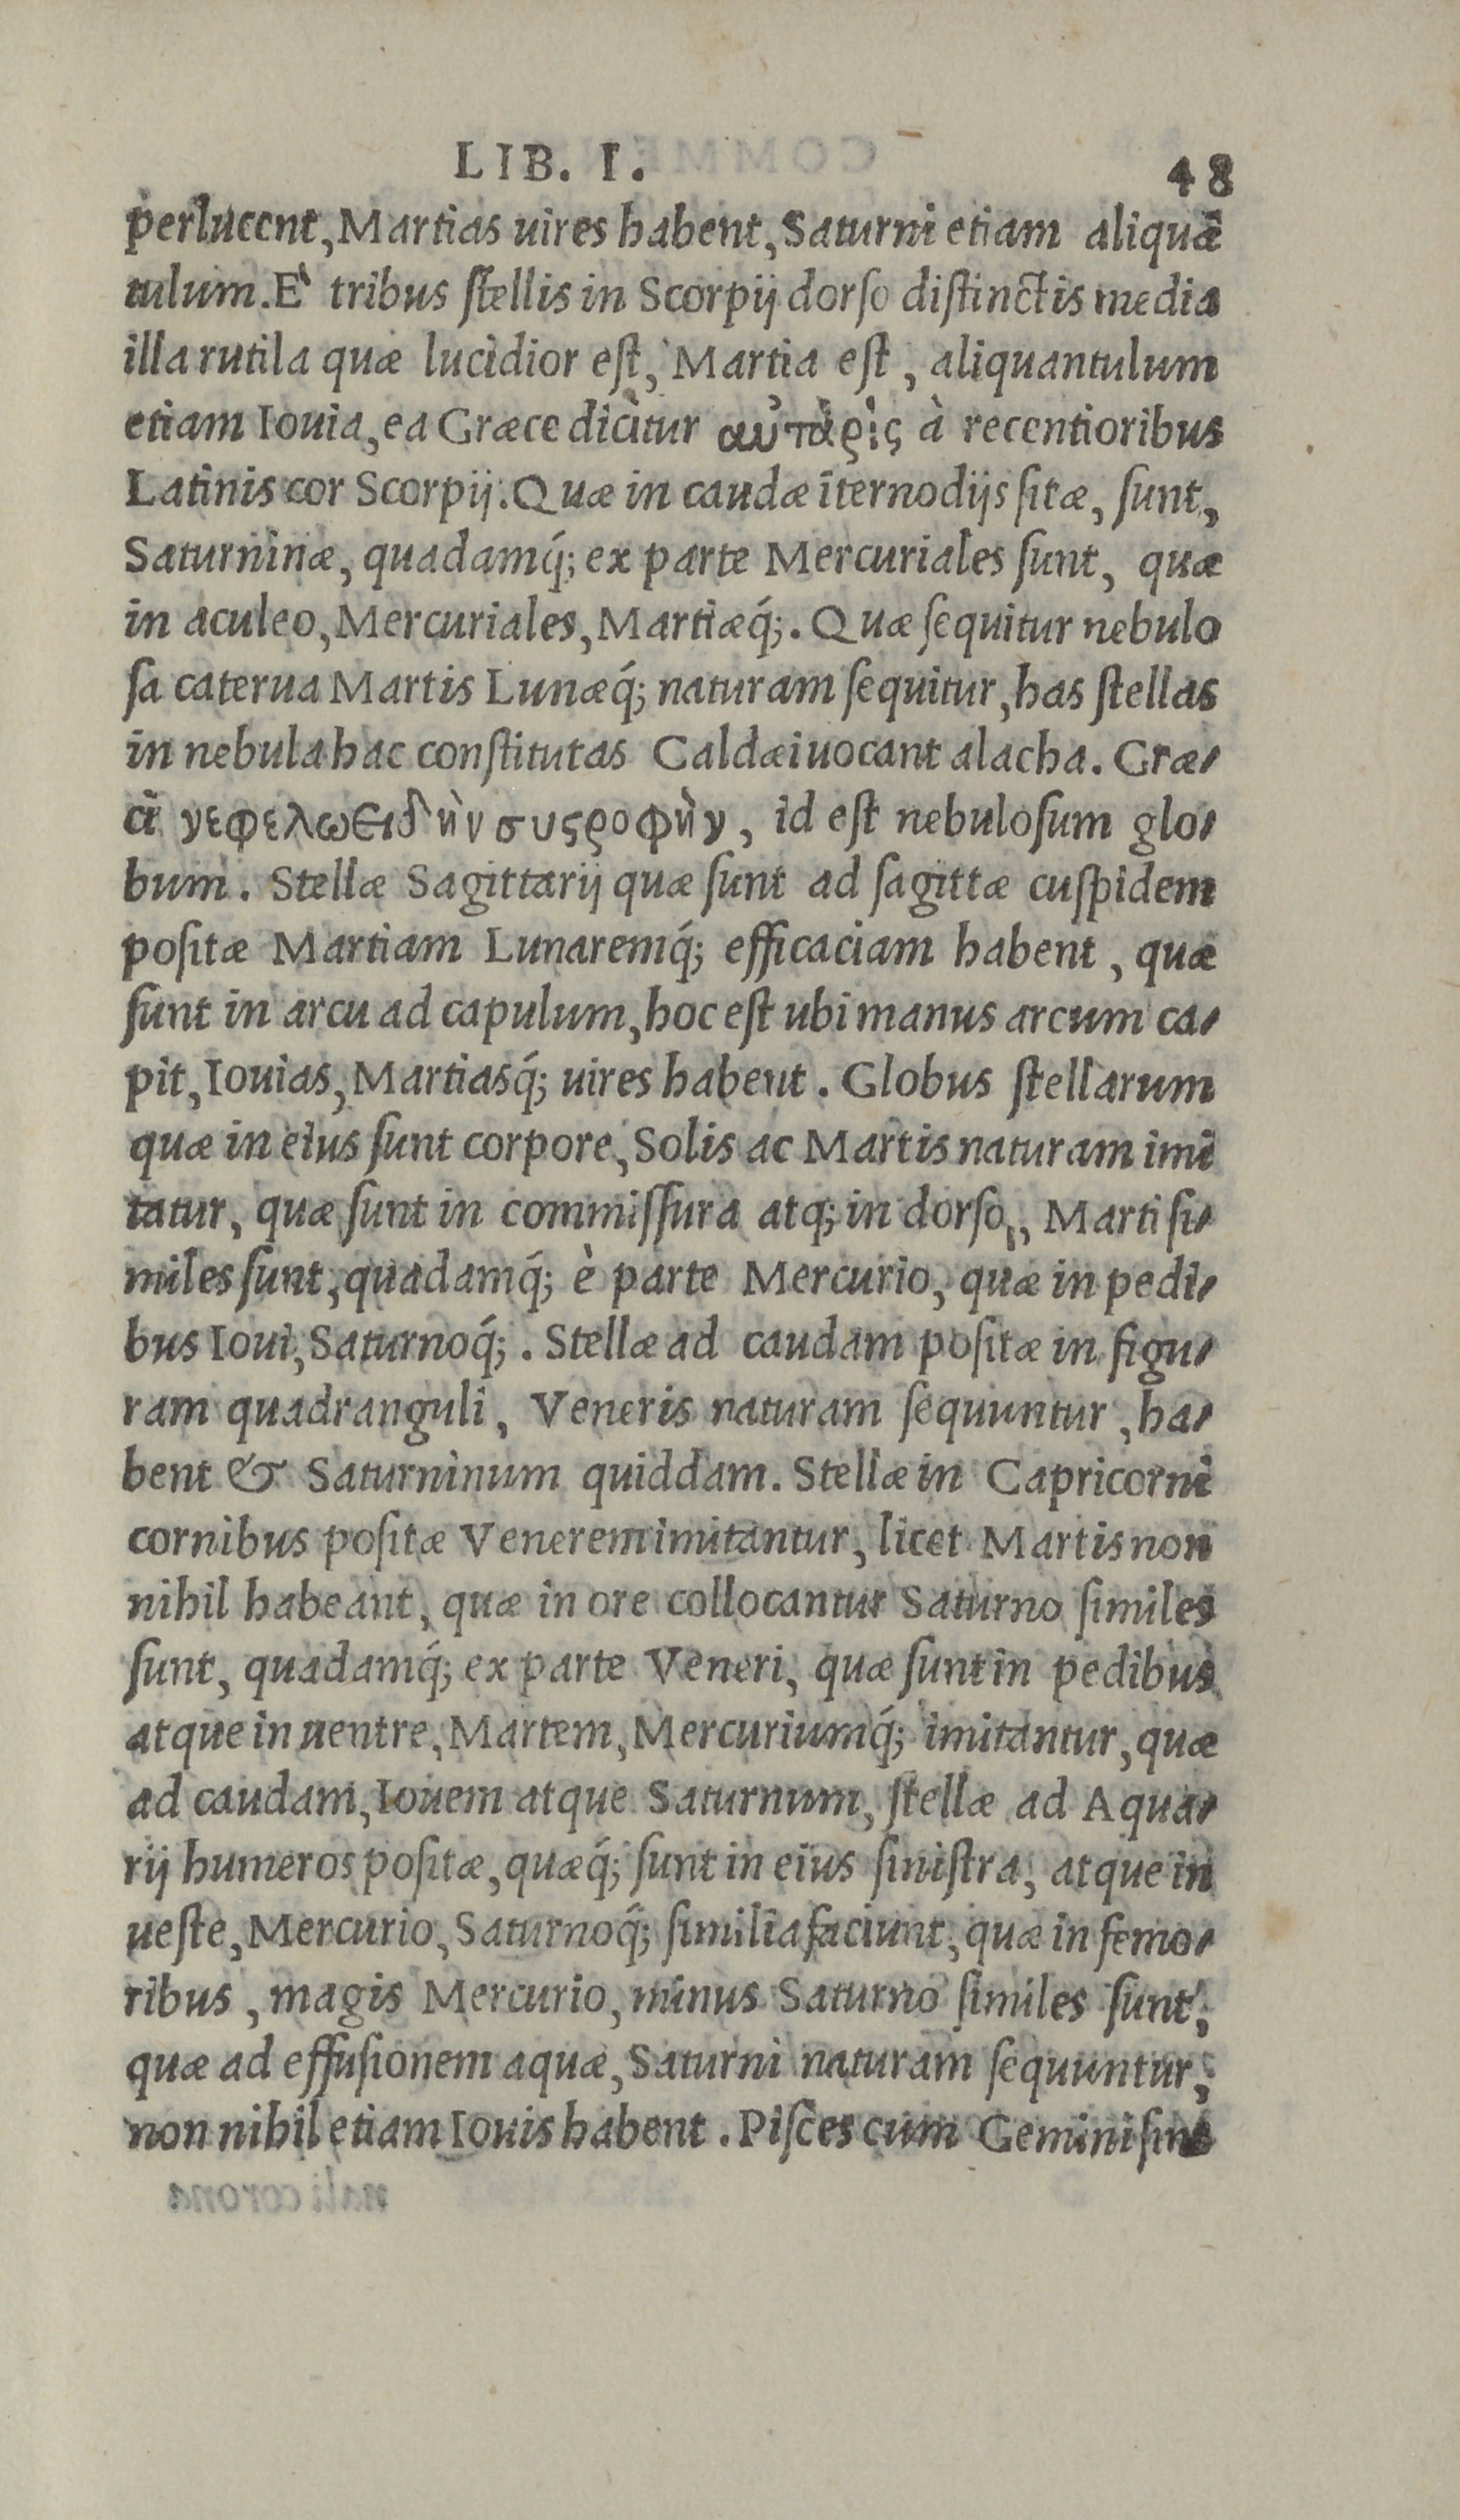 LIB. I. 48
perlucent, Martias uires habent, Saturni etiam aliquã
tulum. E` tribus ſtellis in Scorpij dorſo diſtinctis media
illa rutila quæ lucidior eſt, Martia eſt, aliquantulum
etiam Iouia, ea Græce dicitur αὐτάρὶς à recentioribus
Latinis cor Scorpij. Quæ in caudæ ĩternodijs ſitæ, ſunt,
Saturninæ, quadamq́; ex parte Mercuriales ſunt, quæ
in aculeo, Mercuriales, Martiæq́;. Quæ ſequitur nebulo
ſa caterua Martis Lunæq́; naturam ſequitur, has ſtellas
in nebula hac conſtitutas Caldæi uocant alacha. Græ-
ci νεφελωειδὴν συςροφὴν, id eſt nebuloſum glo-
bum. Stellæ Sagittarij quæ ſunt ad ſagittæ cuſpidem
poſitæ Martiam Lunaremq́; efficaciam habent, quæ
ſunt in arcu ad capulum, hoc eſt ubi manus arcum ca-
pit, Iouias, Martiasq́; uires habent. Globus ſtellarum
quæ in eius ſunt corpore, Solis ac Martis naturam imi
tatur, quæ ſunt in commiſſura atq; in dorſo, Marti ſi-
miles ſunt, quadamq́; è parte Mercurio, quæ in pedi-
bus Ioui, Saturnoq́;. Stellæ ad caudam poſitæ in figu-
ram quadranguli, Veneris naturam ſequuntur, ha-
bent & Saturninum quiddam. Stellæ in Capricorni
cornibus poſitæ Venerem imitantur, licet Martis non
nihil habeant, quæ in ore collocantur Saturno ſimiles
ſunt, quadamq́; ex parte Veneri, quæ ſunt in pedibus
atque in uentre, Martem, Mercuriumq́; imitantur, quæ
ad caudam, Iouem atque Saturnum, ſtellæ ad Aqua-
rij humeros poſitæ, quæq́; ſunt in eius ſiniſtra, atque in
ueſte, Mercurio, Saturnoq́; ſimilia faciunt, quæ in femo-
ribus, magis Mercurio, minus Saturno ſimiles ſunt,
quæ ad effuſionem aquæ, Saturni naturam ſequuntur,
non nihil etiam Iouis habent. Piſces cum Gemini ſint